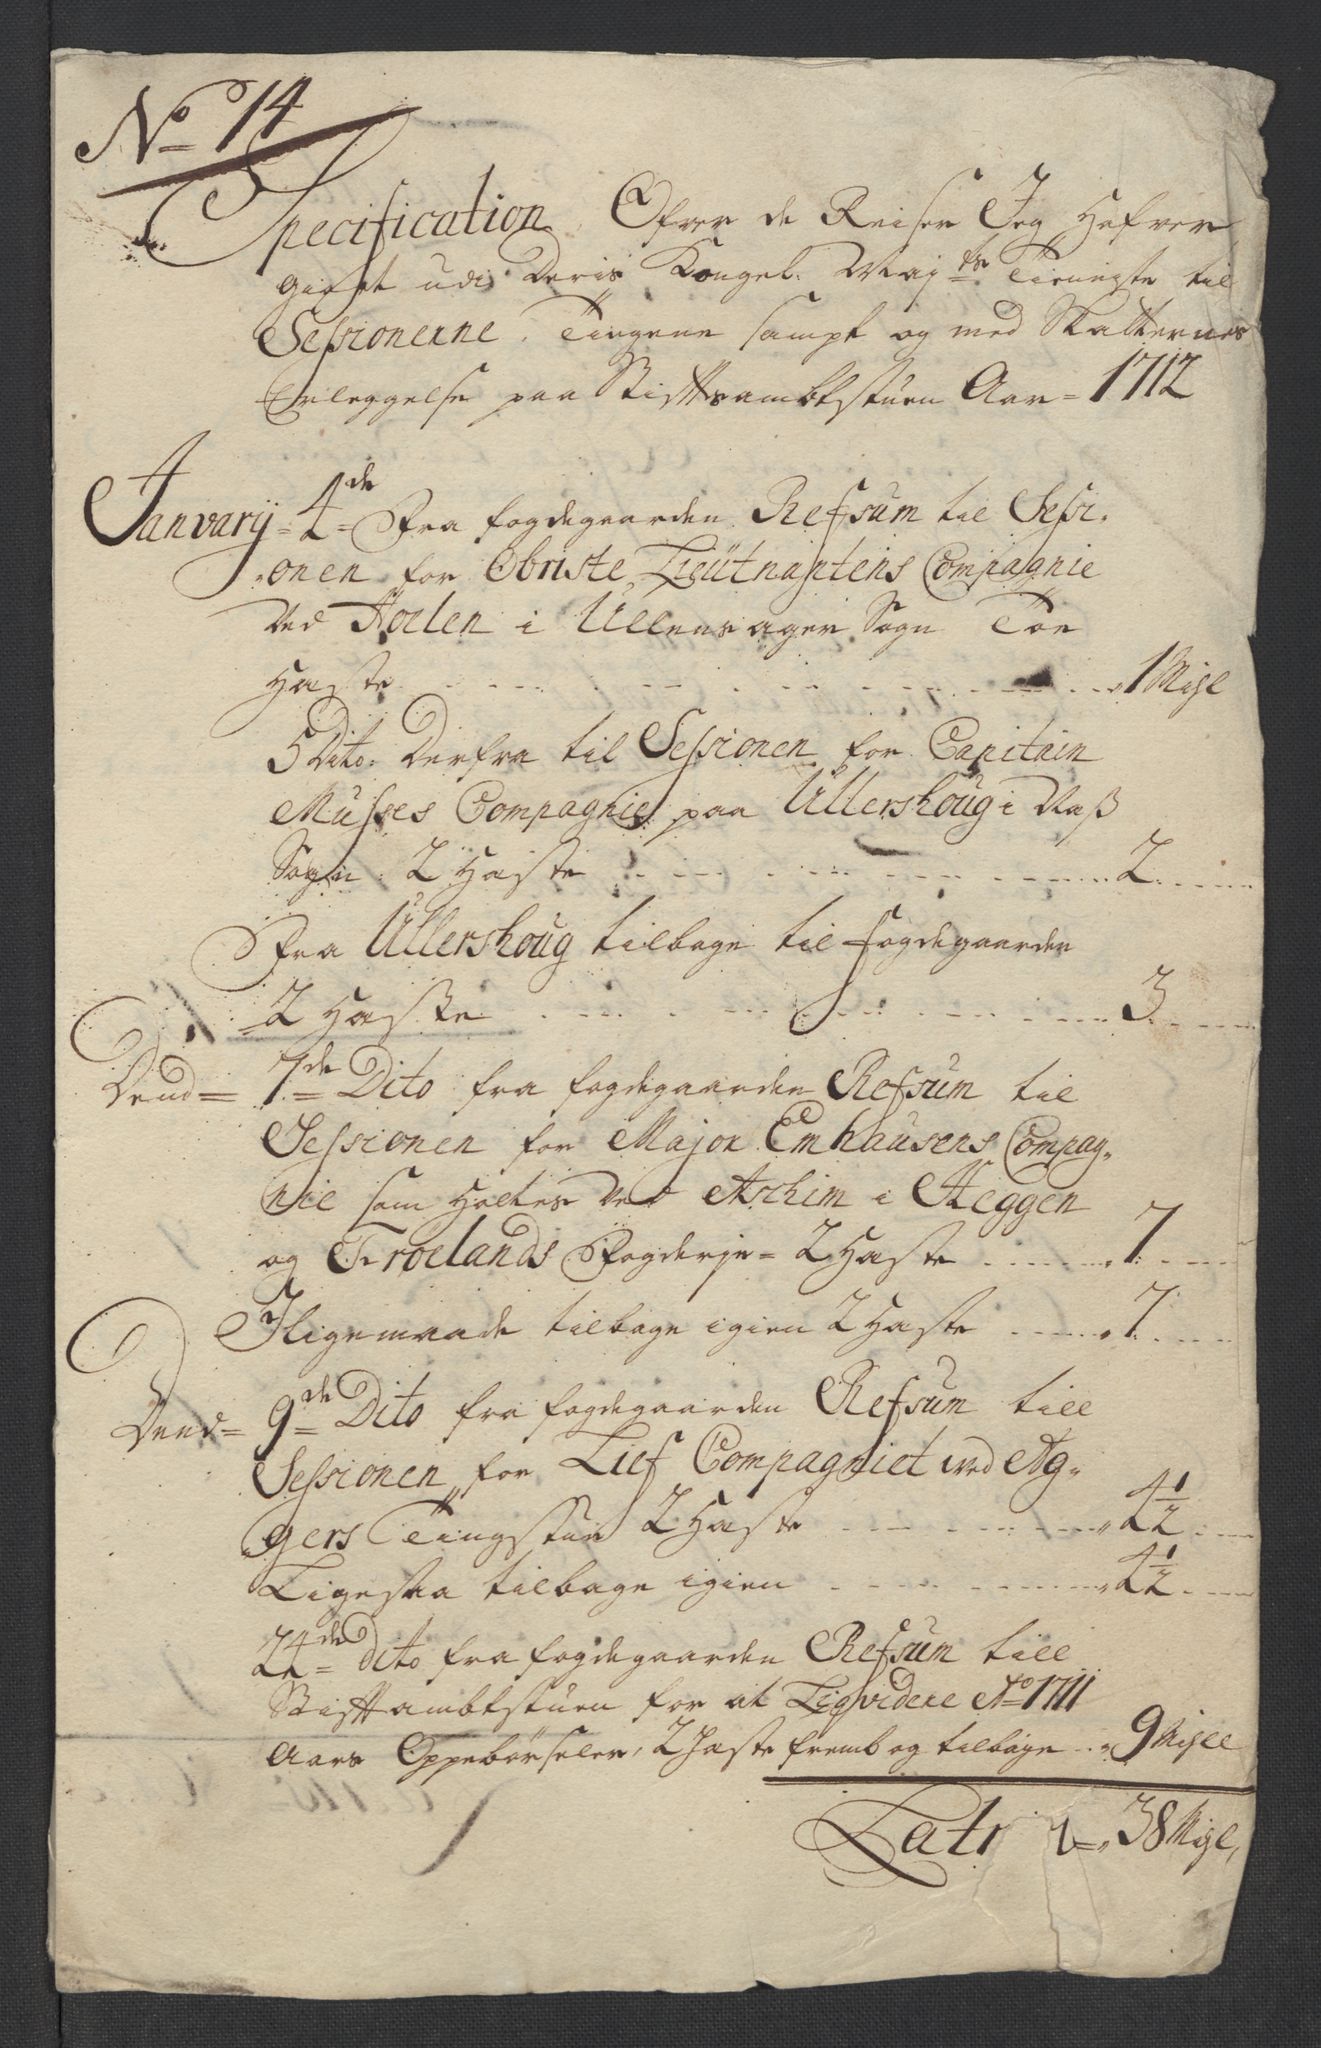 No 14
Specification Ofver de Reiser Jeg Hafver
giort udi Deris Kongel: Maÿts Tieneste til
Sessionerne, Tingene sampt og med Skatternes
Erleggelse paa Stifftsambtstuen Aar = 1712
Janvarij = 4de = Fra fogdegaarden Refsum til Sessi-
onen for Obriste Lieutnantens Compagnie
Ved Hoelen i Ullensager Sogn Toe
Haste 1 Mijl
5 Dito: Derfra til Sessionen for Capitain
Musses Compagnie paa Ullershoug i Næß
Sogn: 2 Haste 2
Fra Ullershoug tilbage til fogdegaarden
2 Haste 3
Dend = 7de Dito fra fogdegaarden Refsum til
Sessionen for Major Emhausens Compag-
nie som Holtes Ved Aschim i Heggen
og Froelands Fogderje = 2 Haste 7
Iligemaade tilbage igien 2 Haste 7
Dend = 9de Dito fra fogdegaarden Refsum till
Sessionen for Lief Compagniet ved Ag-
gers Tingstue 2 Haste 4 1/2
Ligesaa tilbage igien 4 1/2
24de dito fra fogdegaarden Refsum till
Stifftambtstuen for at Liqvidere Ao 1711
Aars Oppebørseler, 2 Haste fremb og tilbage 9 Mijll
Latr 38 Mijl,